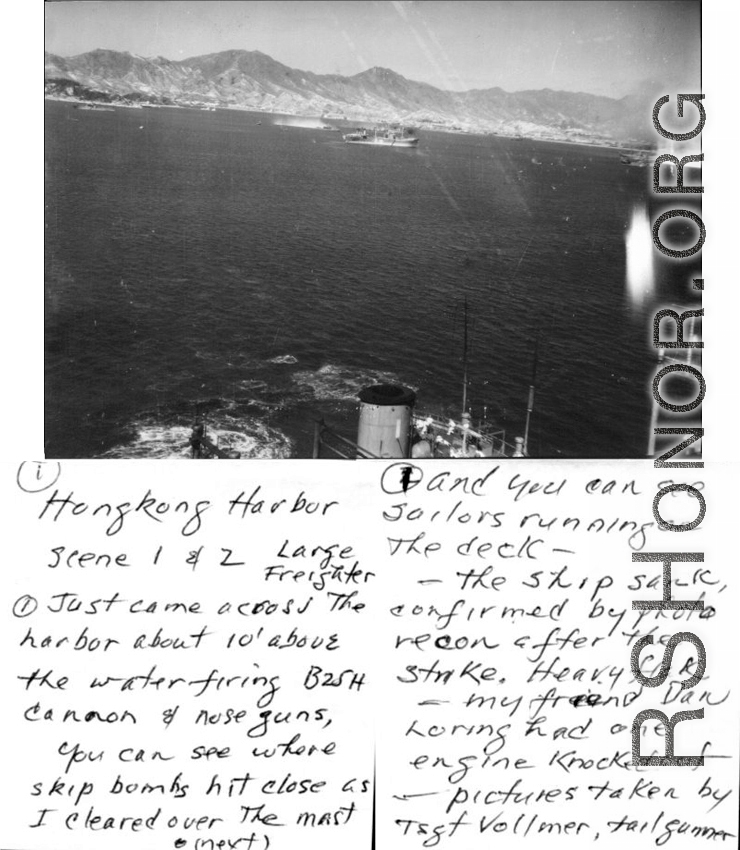 RSHONOR.ORG
1
Hongkong Harbor
Scene 1 & 2 Large
Freighter
① Just came across The
harbor about 10' above
the water-firing B25H
Cannon & nose guns,
you can see where
skip bombs hit close as
I cleared over The mast
(next)
1 and you can see
Sailors running
The deck —
— the ship sank,
confirmed by photo
recon after the
strike. Heavy
— my friend Dan
Loring had one
engine Knocked
— pictures taken by
Tsgt Vollmer, tail gunner